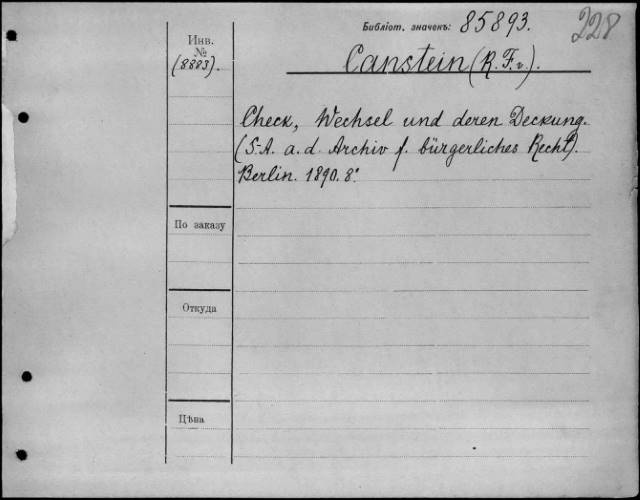 Библіот. значекъ: 85893.
228
Инв.
№
(8883).
Canstein (R. F. v.).
Check, Wechsel und deren Deckung.
(S-A. a. d. Archiv f. bürgerliches Recht).
Berlin. 1890. 8°.
По заказу
Откуда
Цѣна